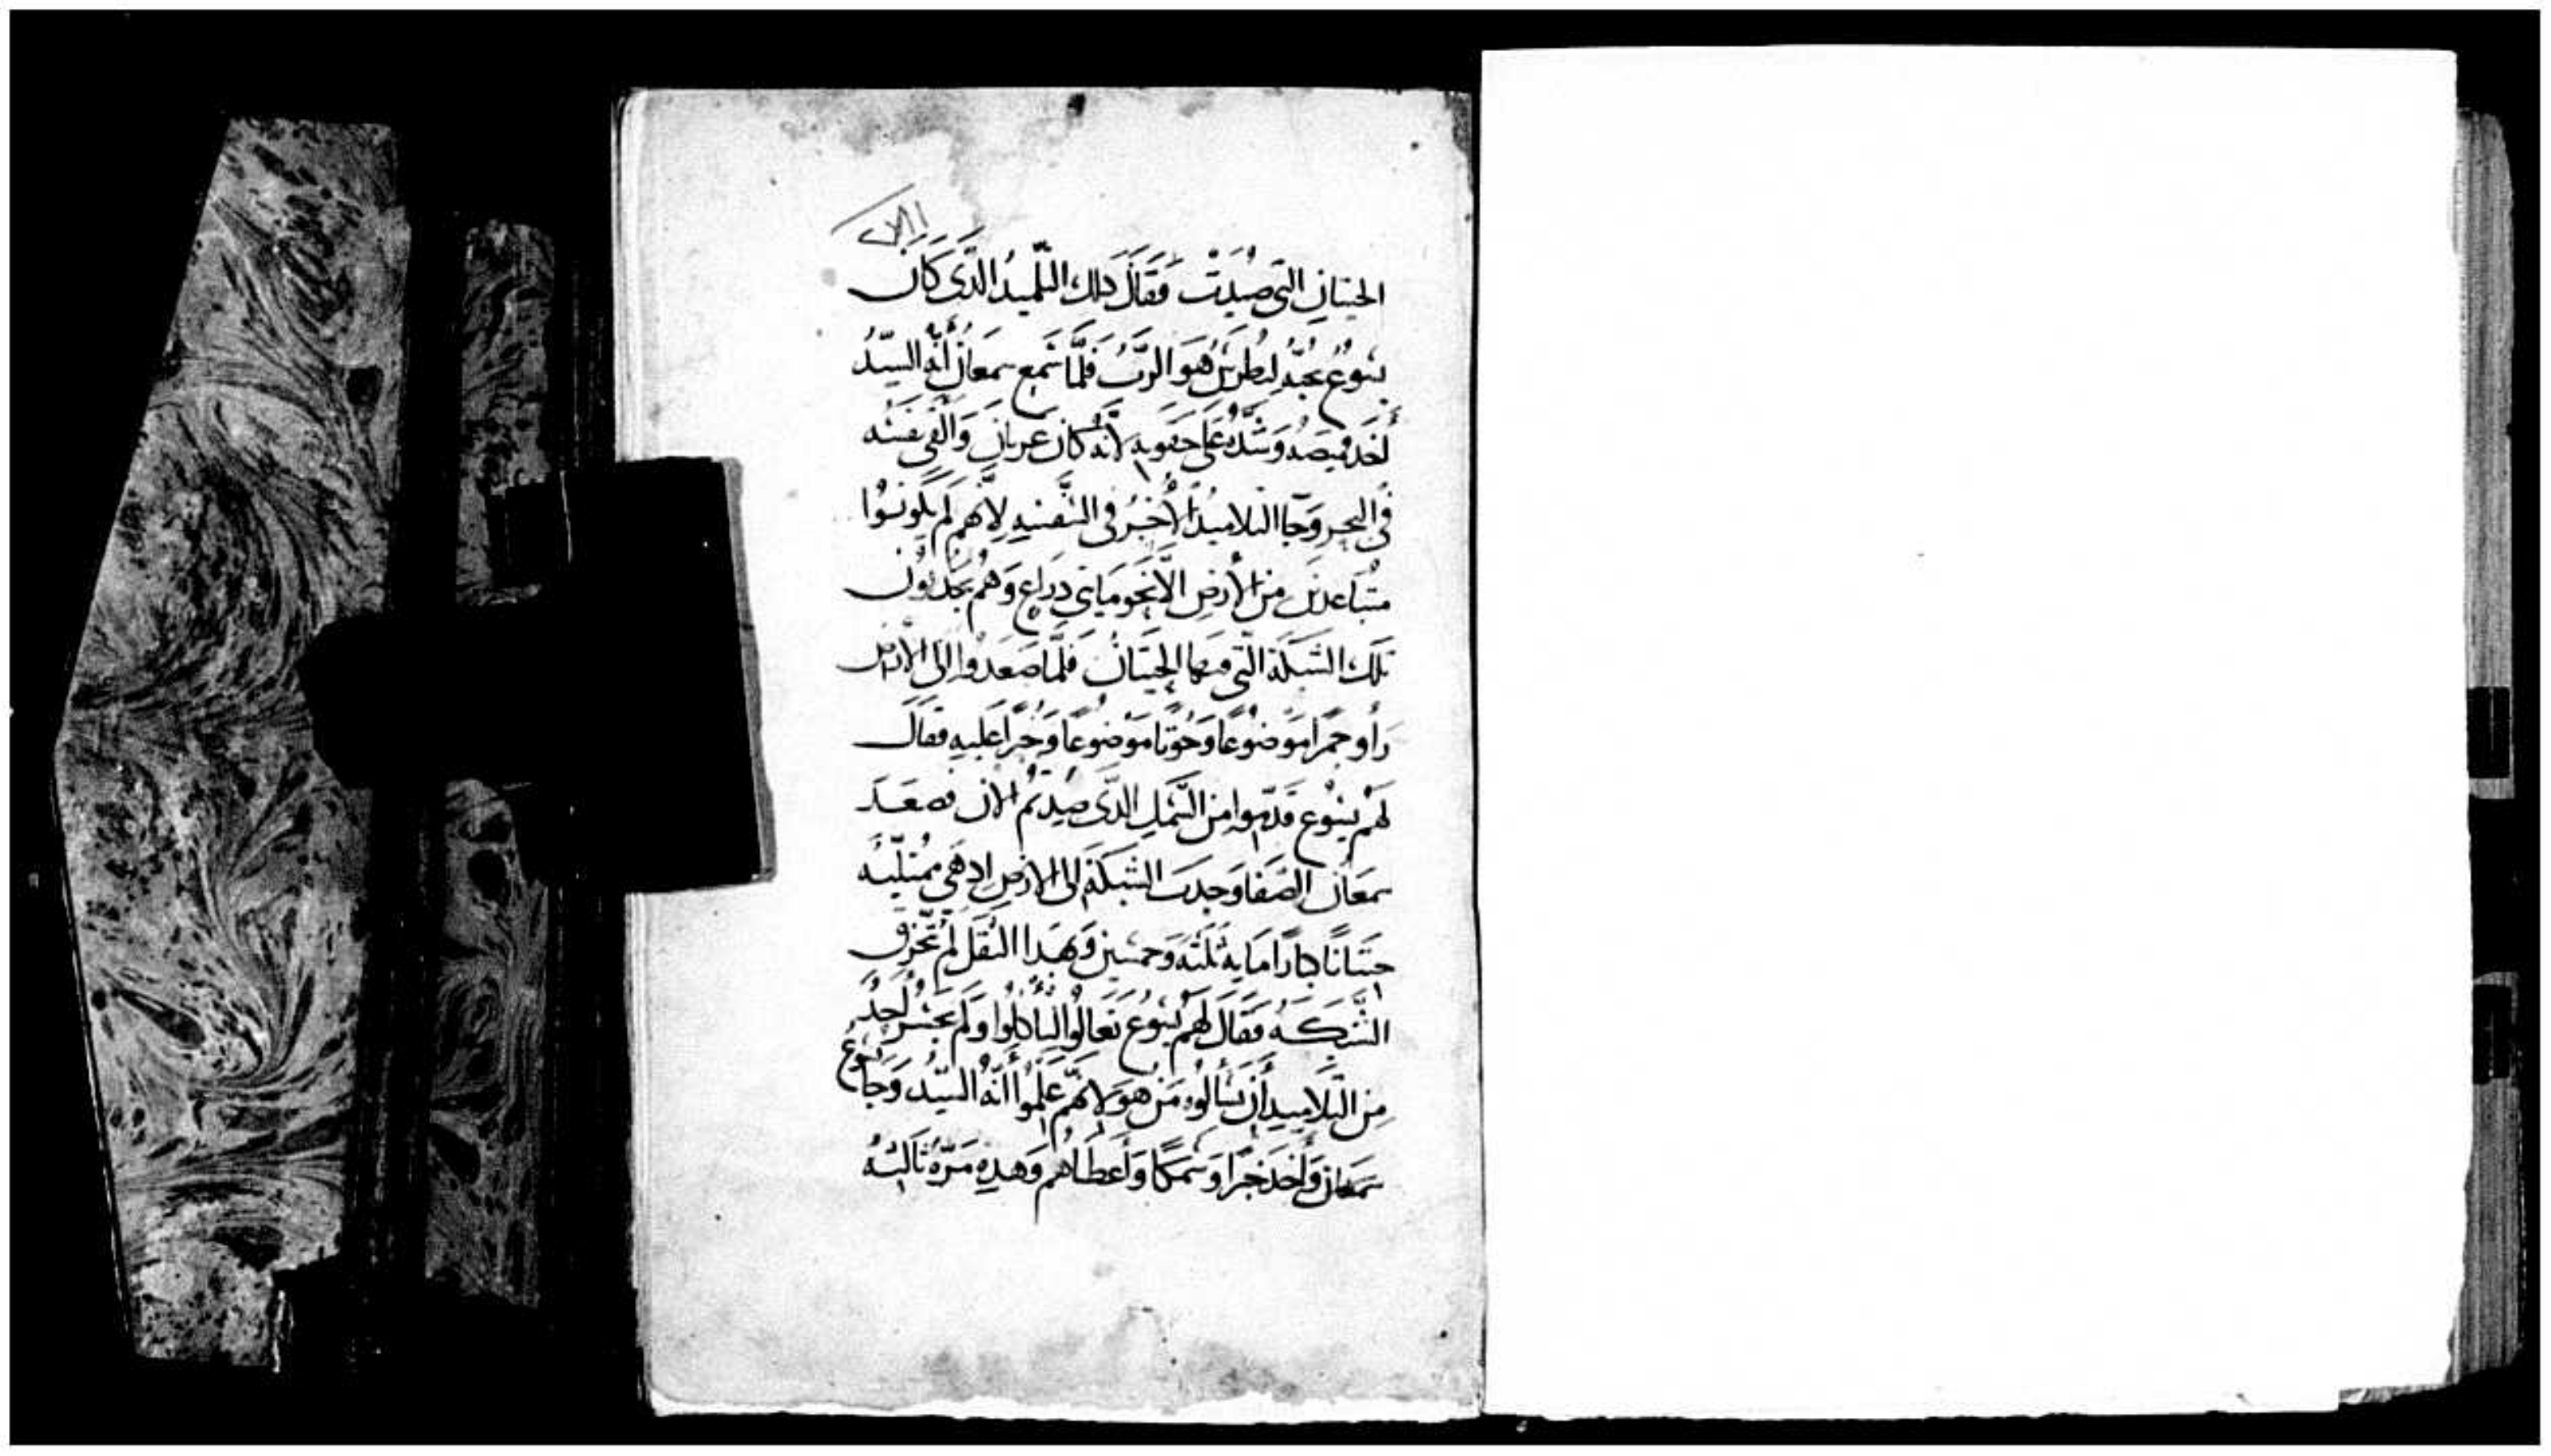 الحيتانِ التى صُيدَتْ فَقَالَ دلك التلميدُ الدّى كَانَ
يسُوعُ يحُبّهُ لبُطرسَ هُوَ الرّبُ فَلمَّا سَمِع سمعَانُ أنّهُ السيّدُ
أخَد قميصَهُ وَشَدّهُ عَلى حقويهِ لأنّهُ كَانَ عريانِ وَالقى نفسَهُ
فى البحرِ وَجَا التلاميدُ الأخرُ فى السَّفنيهِ لأنهم لَم يكُونُوا
متُباَعدينَ منَ الأرضِ الّا نَحَو مايتى دراعٍ وَهُم يجَدبُونَ
تلكَ الشبكَةَ التّى فيهَا الحِيتَانُ فلَمَّا صَعَدُوا الى الأرضِ
رأوا جمرًا مَوضُوعًا وَحُوتًا مَوضُوعًا وَخُبزًا عَليهِ فقالَ
لهَم يسُوع قدّموا منَ السَّمَكِ الدّى صِيدتُم الانَ فصعَدَ
سمعَانُ الصَفا وَجدبَ الشبكَةَ الى الارضِ اد هَى ممُتليّهُ
حيتَانًا كبارًا مَايهَ ثَلثَهَ وَخمسَين وَبهَدا الثقَلِ لم تَتخَرق
الشَّبكَه فقَالَ لهُم يسُوع تعَالوا لتاكلُوا وَلَم يجَسُر أحَدٌ
منِ التّلاميدِ أن يَسألُوه مَن هوَ لانهّم عَلمُوا أنّهُ السيّدُ وَجا يسُوعُ
سمعَان وَأخَد خبزًا وَسَمكًا وَأعطاهُم وَهدهِ مَرّةُ ثالثَهُ